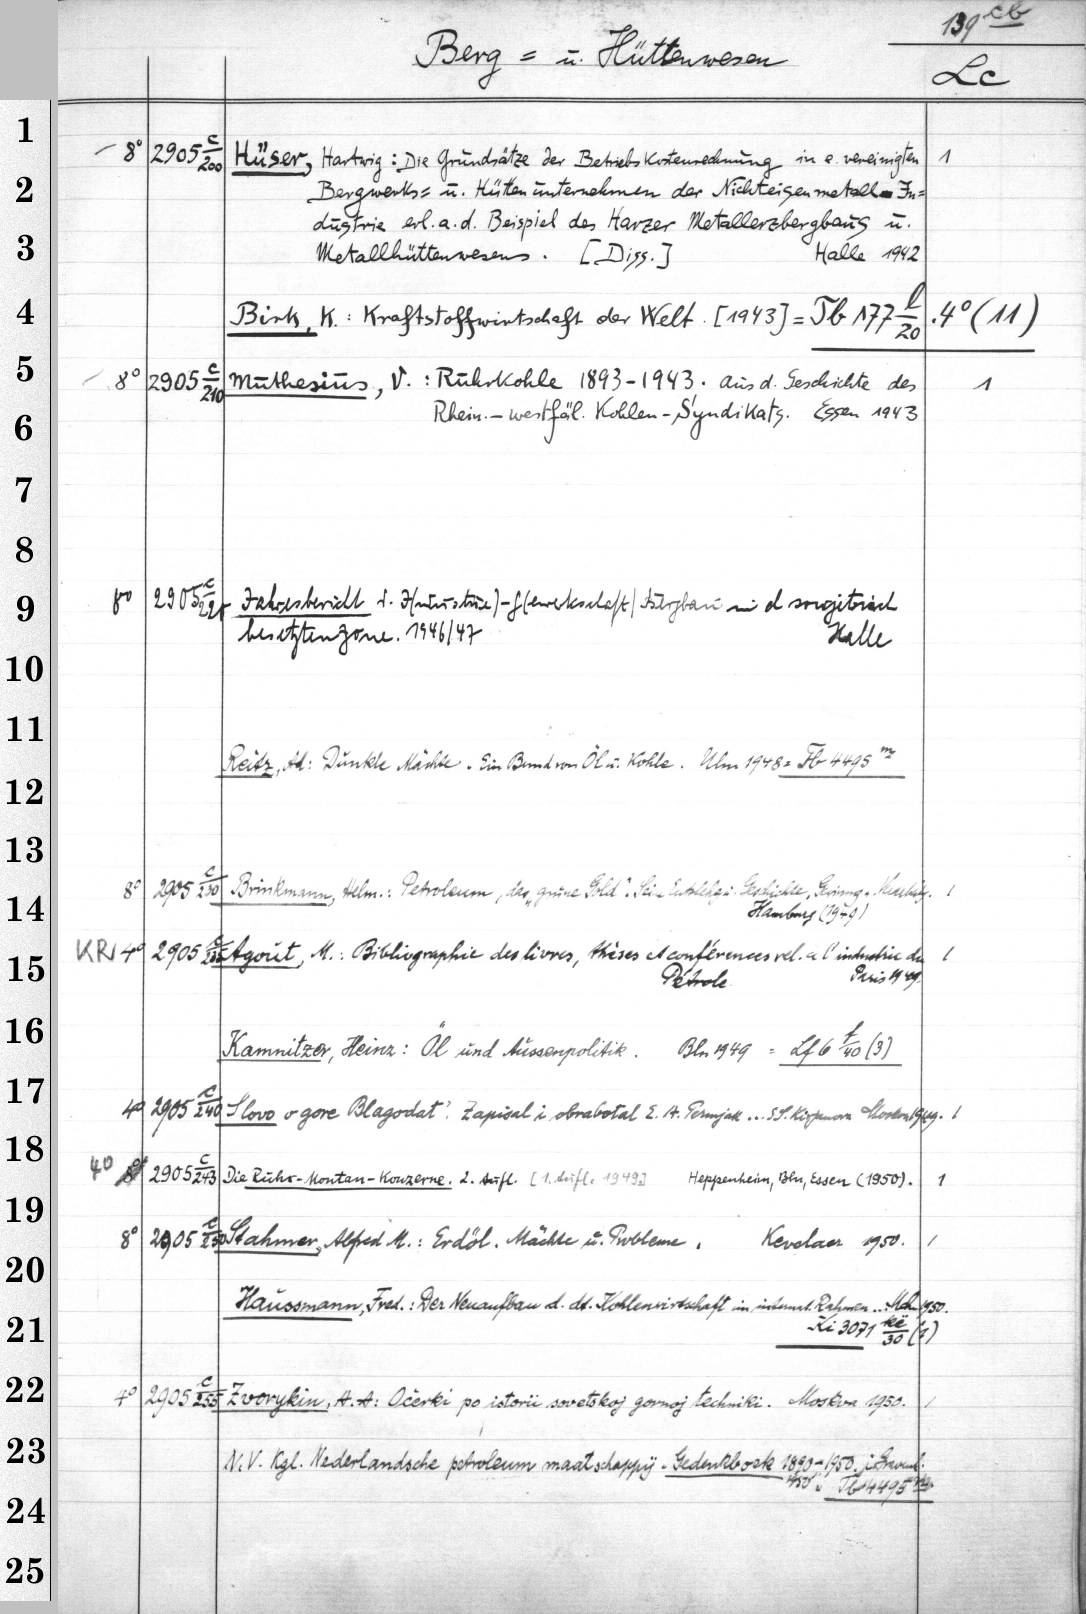 139 cb
Berg = u. Hüttenwesen
Lc
1
8° 2905 c/200 Hüser, Hartwig: Die Grundsätze der Betriebskostenrechnung in e. vereinigten 1
2
Bergwerks= u. Hüttenunternehmen der Nichteisenmetall-In=
dustrie erl. a. d. Beispiel des Harzer Metallerzbergbaus u.
3
Metallhüttenwesens. [Diss.] Halle 1942
4
Birk, K.: Kraftstoffwirtschaft der Welt. [1943] = Tb 177 l/20 . 4° (11)
5
8° 2905 c/210 Muthesius, V.: Ruhrkohle 1893-1943. Aus d. Geschichte des 1
6
Rhein.-westfäl. Kohlen-Syndikats. Essen 1943
7
8
9
8° 2905 c/225 Jahresbericht d. I(ndustrie)-G(ewerkschaft) Bergbau in d sowjetisch
besetzten Zone. 1946/47 Halle
10
11
Reitz, Ad: Dunkle Mächte. Ein Band von Öl u. Kohle. Ulm 1948 = Tb 4495 m
12
13
8° 2905 c/230 Brinkmann, Helm.: Petroleum, das "grüne Gold". Geschichte, 1
14
Hamburg (1949)
KRI 4° 2905 c/235 Agout, M.: Bibliographie des livres, thèses et conférences rel. a l'industrie du 1
15
Pétrole. Paris 1949.
16
Kamnitzer, Heinz: Öl und Aussenpolitik. Bln 1949 = Lf 6 f/40 (3)
17
4° 2905 c/240 Slovo o gore Blagodat'. Zapisal i obrabotal E. A. Permjak ... Moskva 1949. 1
18
4° 8° 2905 c/243 Die Ruhr-Montan-Konzerne. 2. Aufl. [1. Aufl. 1949] Heppenheim, Bln, Essen (1950). 1
19
8° 2905 c/250 Stahmer, Alfred M.: Erdöl. Mächte u. Probleme. Kevelaer 1950. 1
20
Haussmann, Fred.: Der Neuaufbau d. dt. Kohlenwirtschaft im internat. Rahmen ... Mchn 1950.
21
Ki 3071 kë/30 (1)
22
4° 2905 c/255 Zvorykin, A. A: Očerki po istorii sovetskoj gornoj techniki. Moskva 1950. 1
23
N.V. Kgl. Nederlandsche petroleum maatschappij. Gedenkboek 1890-1950.
24
1950 = Tb 4495
25